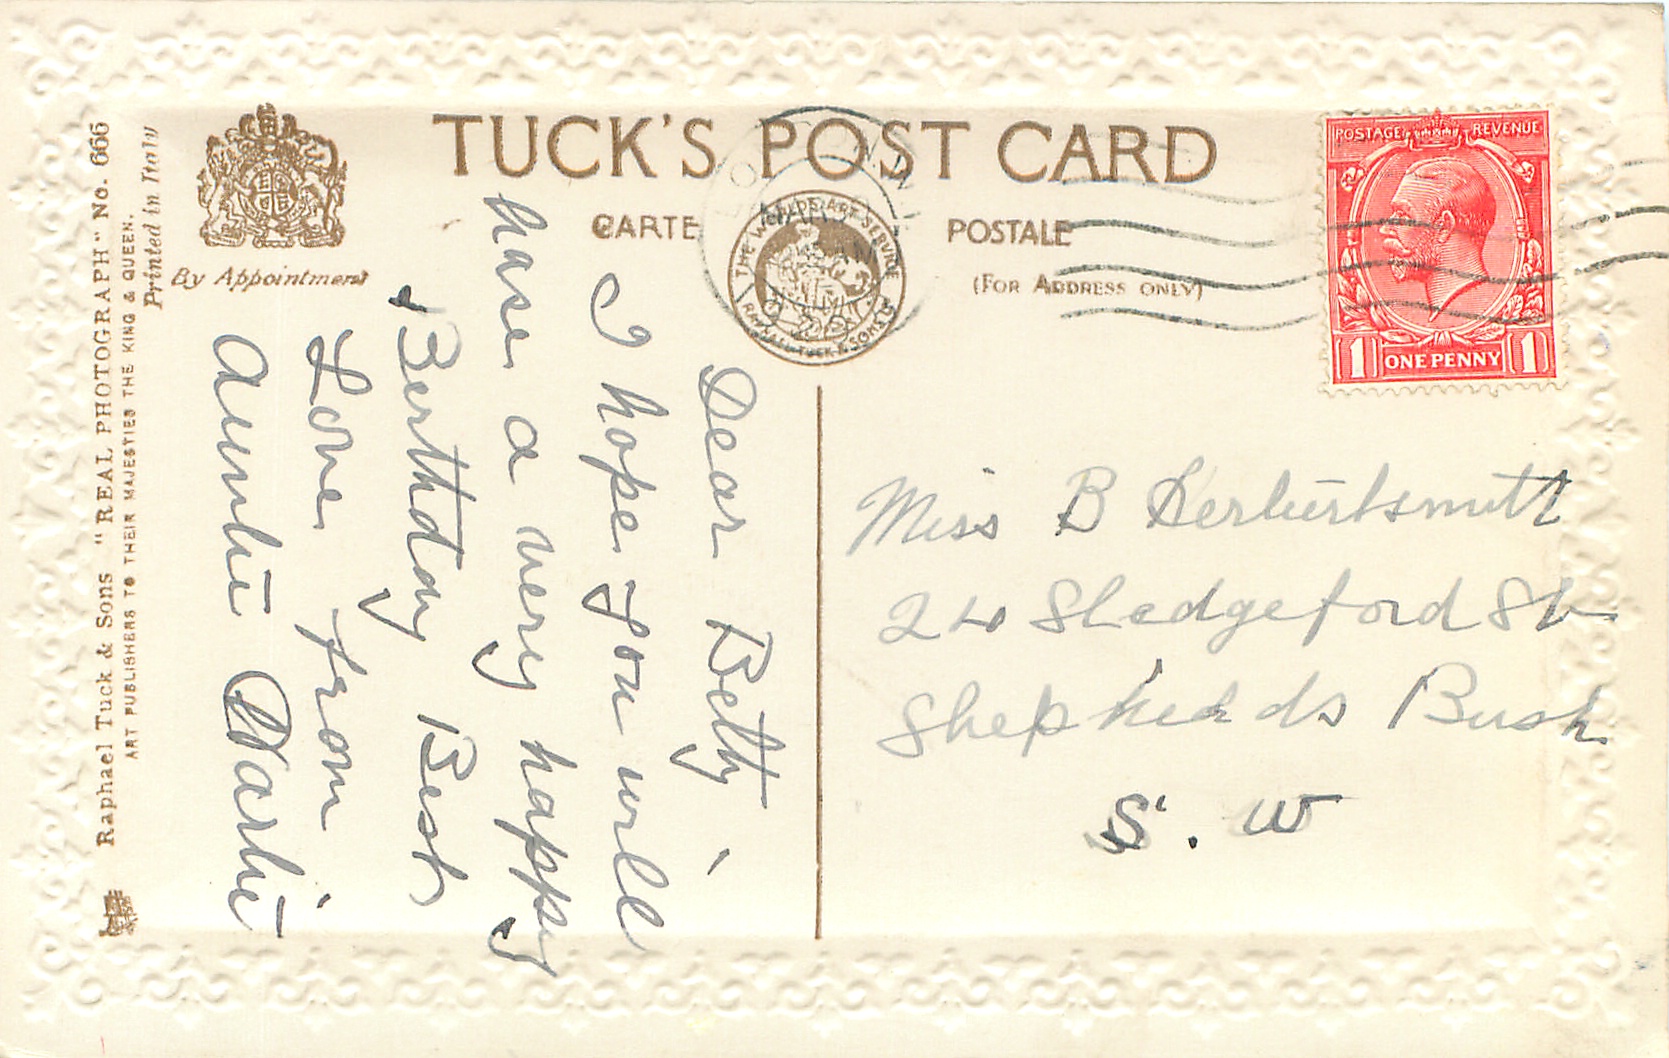 TUCK'S POST CARD
CARTE POSTALE
(FOR ADDRESS ONLY)
By Appointment
THE WORLDS ART SERVICE
RAPHAEL TUCK & SONS LD
POSTAGE REVENUE
1 ONE PENNY 1
Raphael Tuck & Sons "REAL PHOTOGRAPH" No. 666
ART PUBLISHERS TO THEIR MAJESTIES THE KING & QUEEN.
Printed in Italy
Dear Betty
I hope you will
have a very happy
Birthday Best
Love from
Auntie
Miss B Herbertsmith
24 Sledgeford St
Shepherds Bush
S. W